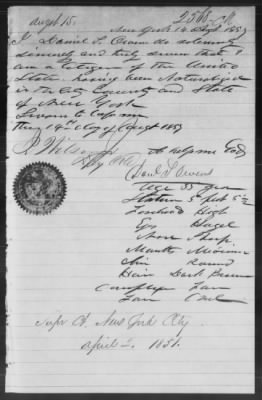 Augt 15.
New York 14 Augt 185
I Daniel S. Owens do solemnly
sincerely and truly swear that I
am a Citizen of the United
States having been Naturalized
in the City County and State
of New York
Sworn to before me
this 14th day of Augt 185
So help me God
Danl S Owens
Age 35 years
Stature 5 feet
Forehead High
Eyes Hazel
Nose Sharp
Mouth Medium
Chin Round
Hair Dark Brown
Complexn Fair
Face Oval
Supr Ct. New York City.
April 2. 1851.